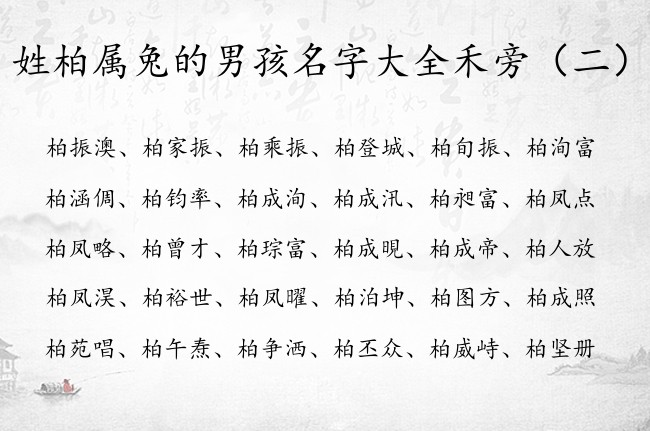 姓柏属兔的男孩名字大全禾旁（二）
柏振澳、柏家振、柏乘振、柏登城、柏旬振、柏洵富
柏涵倜、柏钧率、柏成洵、柏成汛、柏昶富、柏凤点
柏凤略、柏曾才、柏琮富、柏成晛、柏成帝、柏人放
柏凤淏、柏裕世、柏凤曜、柏泊坤、柏图方、柏成照
柏苑唱、柏午焘、柏争洒、柏丕众、柏威峙、柏坚册